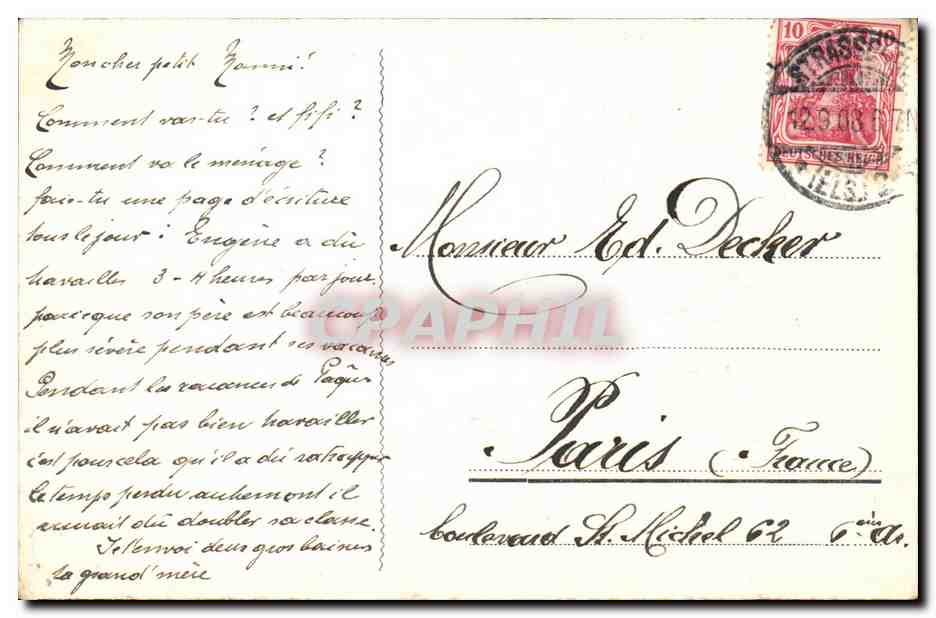 Mon cher petit Mammi!
Comment vas-tu? et fifi?
Comment va le ménage?
fais-tu une page d'écriture
tous le jour: Eugène a dû
travailler 3-4 heures par jour
parceque son père est beaucoup
plus sévère pendant ses vacances
Pendant les vacances de Pâques
il n'avait pas bien travailler
c'est pour cela qu'il a dû rattrapper
le temps perdu autrement il
aurait dû doubler sa classe.
Je t'envoi deux gros baisers
ta grand'mère
10 10
STRASSB
12.9.08 6-7N
DEUTSCHES REICH
(ELS.) 2
Monsieur Ed. Decker
CPAPHIL
Paris (France)
boulevard St. Michel 62 6ème Ar.